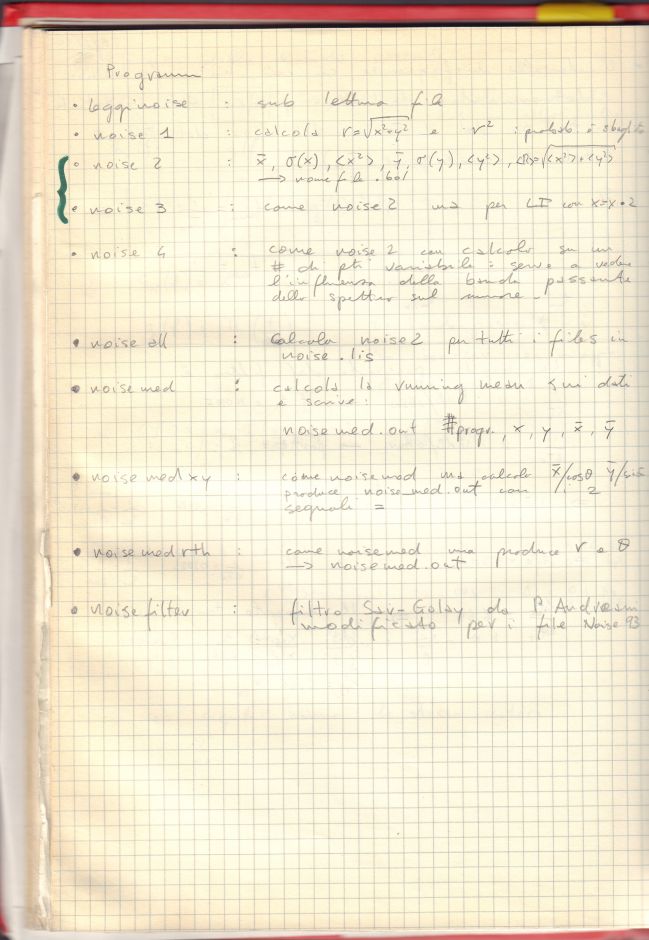 Programmi
• legginoise : sub lettura file
• noise 1 : calcola r=√x²+y² e r² : probab. è sbagliato
• noise 2 : x̄, σ(x), <x²>, ȳ, σ(y), <y²>, <R>=√<x²>+<y²>
→ nome file .bol
• noise 3 : come noise2 ma per con x=x•2
• noise 4 : come noise 2 con calcolo su un
# di pti variabile : serve a vedere
l'influenza della banda passante
dello spettro sul rumore.
• noise all : calcola noise2 per tutti i files in
noise.lis
• noisemed : calcola la running mean sui dati
e scrive:
noisemed.out #progr., x, y, x̄, ȳ
• noisemedxy : come noisemed ma calcola x̄/cosθ ȳ/sinθ
produce noise_med.out con i 2
segnali =
• noisemedrth : come noisemed ma produce r e θ
→ noisemed.out
• noisefilter : filtro Sav-Golay da P. Andreani
modificato per i file Noise93